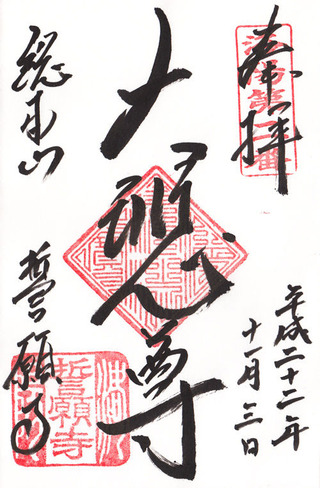 奉拝
洛陽第二番
平成二十二年
十一月三日
大悲尊
総本山
誓願寺
誓願寺